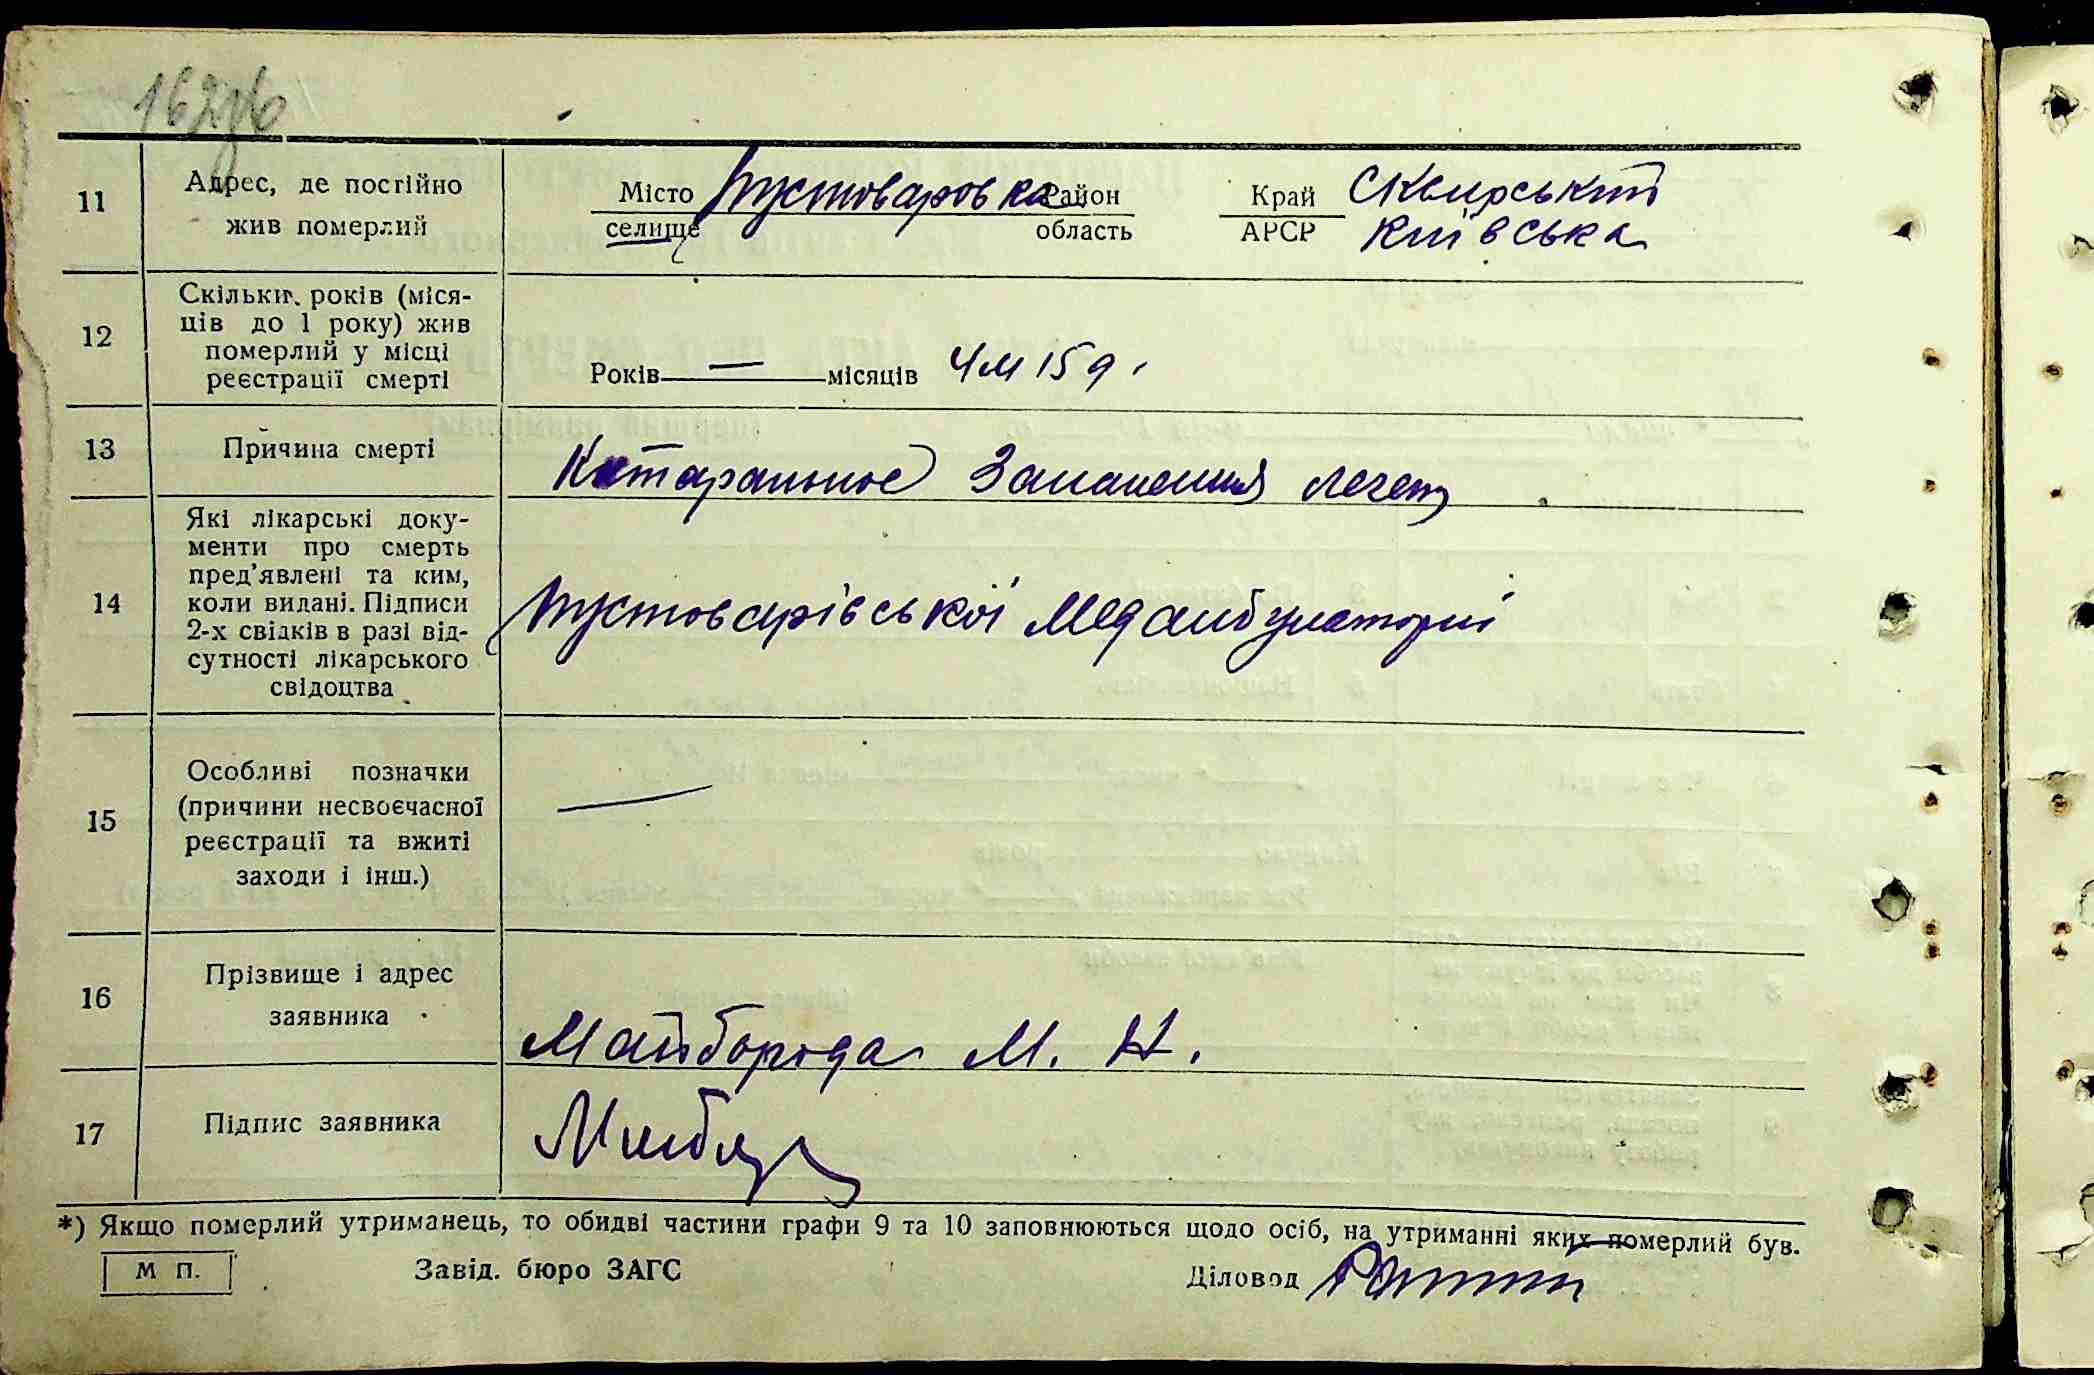 11 Адрес, де постійно
жив померлий
Місто Пустоваровка Район Край Сквирський
селище область АРСР Київська
12 Скільки років (міся-
ців до 1 року) жив
померлий у місці
реєстрації смерті
Років — місяців 4 м 15 д.
13 Причина смерті
Катаральное Запалення легень
14 Які лікарські доку-
менти про смерть
пред’явлені та ким,
коли видані. Підписи
2-х свідків в разі від-
сутності лікарського
свідоцтва
Пустоварівської Медамбулаторії
15 Особливі позначки
(причини несвоєчасної
реєстрації та вжиті
заходи і інш.)
—
16 Прізвище і адрес
заявника
Майборода М. Н.
17 Підпис заявника
*) Якщо померлий утриманець, то обидві частини графи 9 та 10 заповнюються щодо осіб, на утриманні яких померлий був.
М П. Завід. бюро ЗАГС Діловод